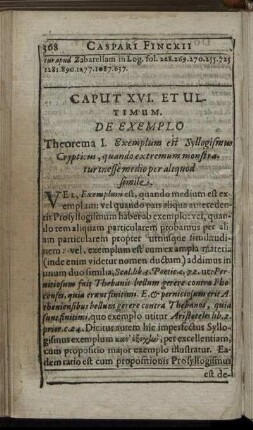 308 CASPARI FINCKII
tur apud Zabarellam in Log. fol. 228.269.270.255.725
1281.890.1277.1087.637.
CAPUT XVI. ET UL-
TIMUM.
DE EXEMPLO
Theorema I. Exemplum est Syllogismus
Crypticus, quando extremum monstra-
tur inesse medio per aliquod
simile.
VEl, Exemplum est, quando medium est ex-
emplum: vel quando pars aliqua antecedenris
Prosyllogismum habet ab exemplo: vel, quan-
do rem aliquam particularem probamus per ali-
am particularem propter utriusque similitudi-
nem: vel, exemplum est
(inde enim videtur nomen ductum) addimus in
unum duo similia; Scal. lib. 4. Poetic. c. 72. ut: Per-
niciosum fuit Thebanis bellum gerere contra Pho-
censes, quia erant finitimi. E. & perniciosum erit A-
theniensibus bellum gerere contra Thebanos, quia
sunt finitimi, quo exemplo utitur Aristoteles lib. 2.
prior. c. 24. Dicitur autem hic imperfectus Syllo-
gismus exemplum κατ᾽ ἐξοχὴν, per excellentiam,
cum propositio major exemplo illustratur. Ea-
dem ratio est cum propositionis Prosyllogismus
est de-